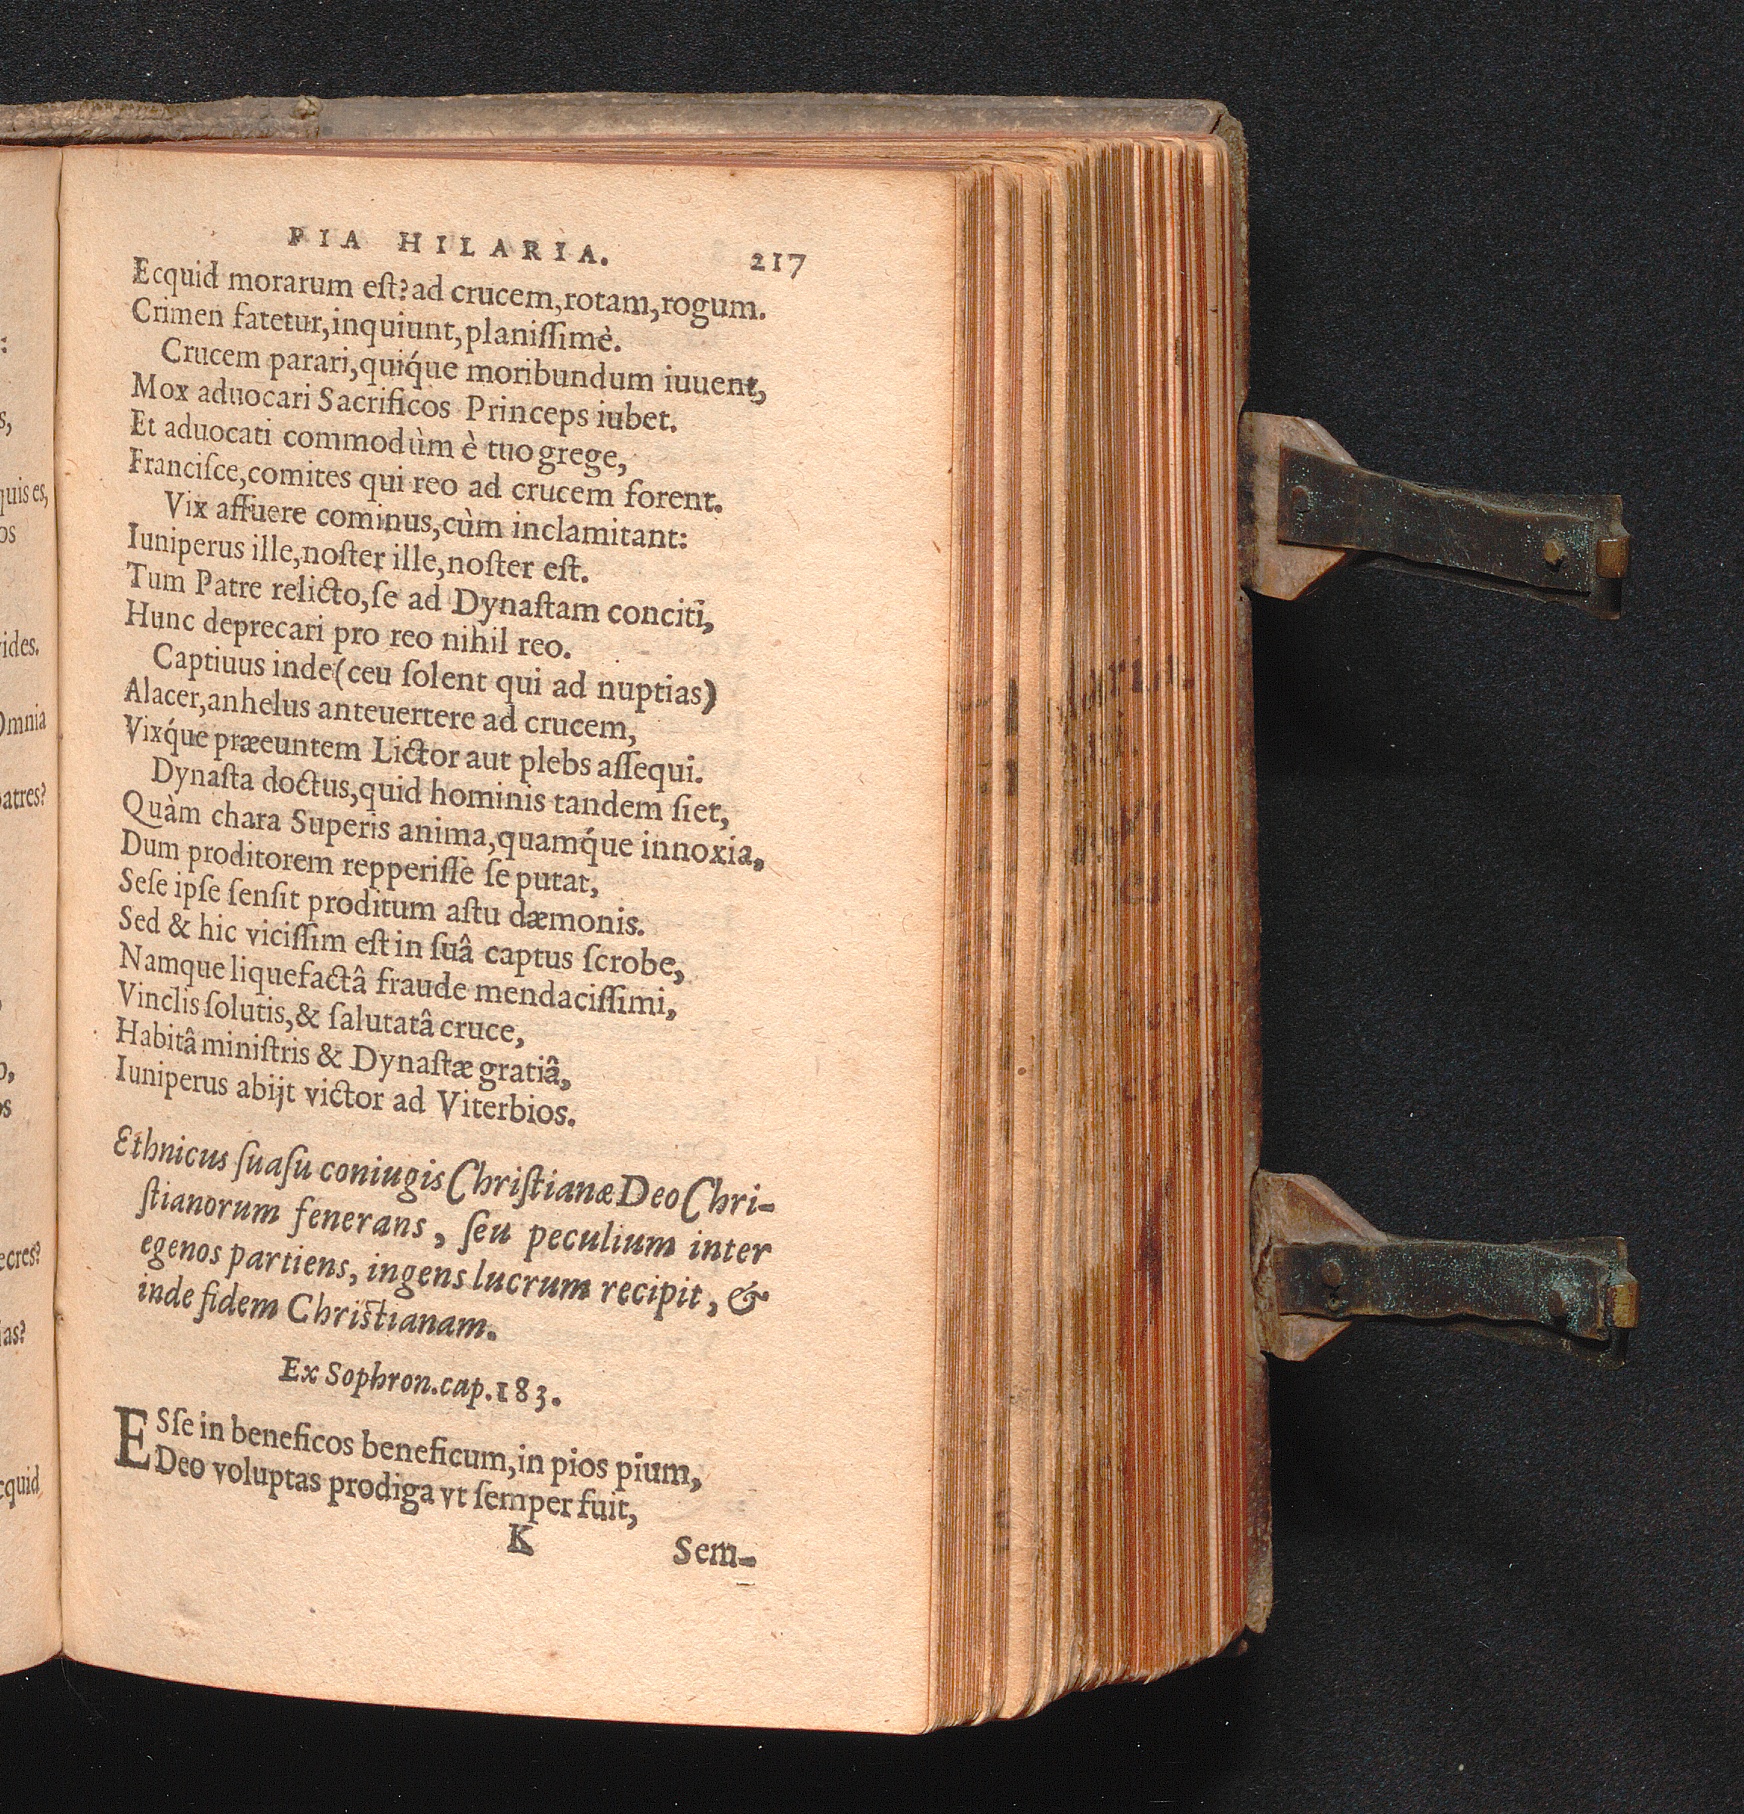 PIA HILARIA. 217
Ecquid morarum eſt? ad crucem, rotam, rogum.
Crimen fatetur, inquiunt, planiſſimè.
Crucem parari, quiq́ue moribundum iuuent,
Mox aduocari Sacrificos Princeps iubet.
Et aduocati commodùm è tuo grege,
Franciſce, comites qui reo ad crucem forent.
Vix affuere cominus, cùm inclamitant:
Iuniperus ille, noſter ille, noſter eſt.
Tum Patre relicto, ſe ad Dynaſtam conciti,
Hunc deprecari pro reo nihil reo.
Captiuus inde (ceu ſolent qui ad nuptias)
Alacer, anhelus anteuertere ad crucem,
Vixq́ue præeuntem Lictor aut plebs aſſequi.
Dynaſta doctus, quid hominis tandem ſiet,
Quàm chara Superis anima, quamq́ue innoxia,
Dum proditorem repperiſſe ſe putat,
Seſe ipſe ſenſit proditum aſtu dæmonis.
Sed & hic viciſſim eſt in ſuâ captus ſcrobe,
Namque liquefactâ fraude mendaciſſimi,
Vinclis ſolutis, & ſalutatâ cruce,
Habitâ miniſtris & Dynaſtæ gratiâ,
Iuniperus abijt victor ad Viterbios.
Ethnicus ſuaſu coniugis Chriſtianæ Deo Chri-
ſtianorum fenerans, ſeu peculium inter
egenos partiens, ingens lucrum recipit, &
inde fidem Chriſtianam.
Ex Sophron. cap. 183.
ESſe in beneficos beneficum, in pios pium,
Deo voluptas prodiga vt ſemper fuit,
K Sem-
quis es,
os
ides.
Omnia
patres?
ecres?
ias?
cquid